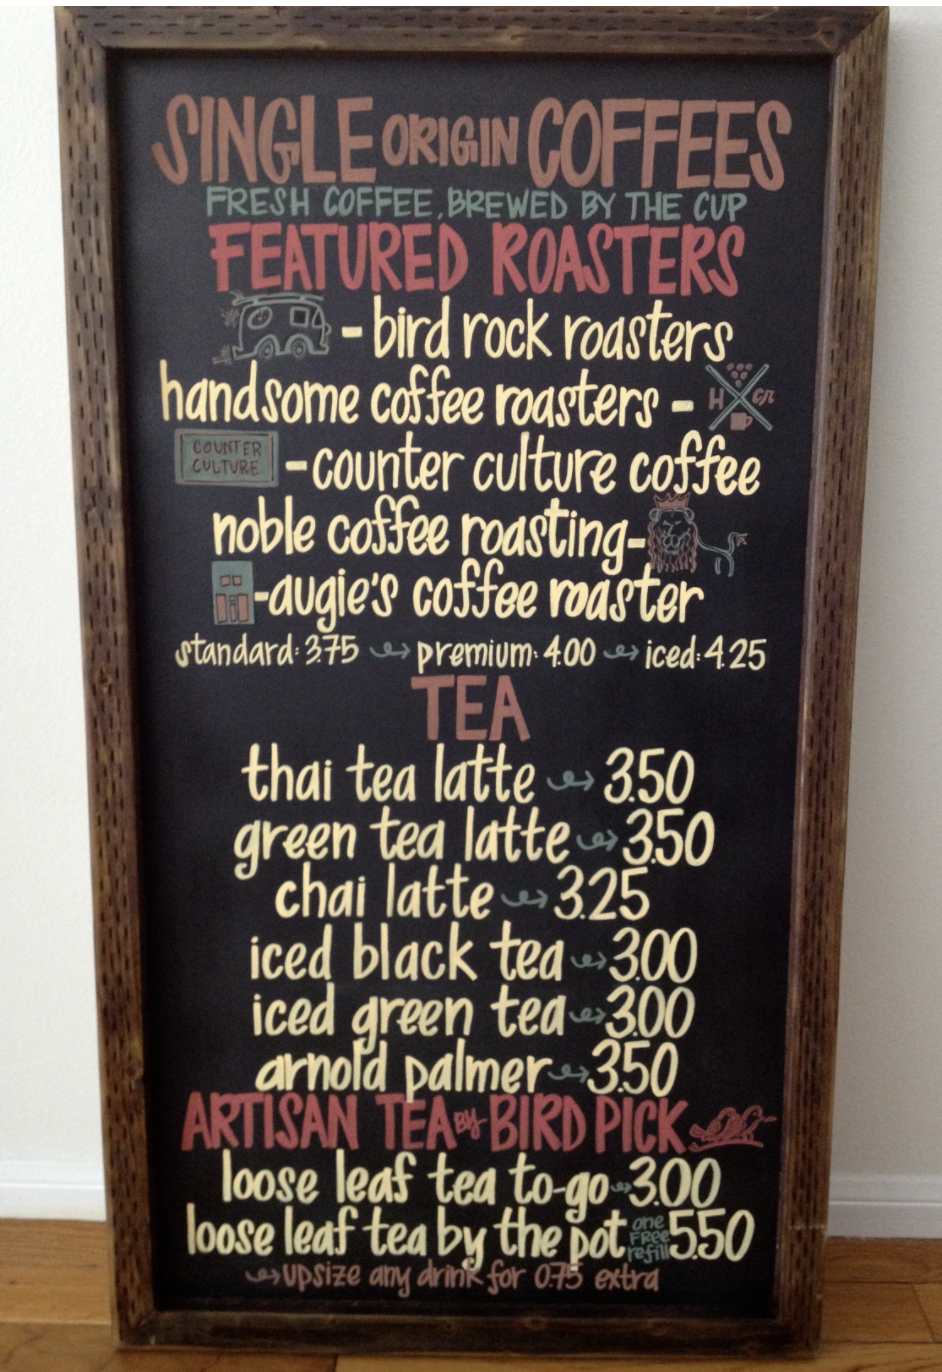 SINGLE ORIGIN COFFEES
FRESH COFFEE, BREWED BY THE CUP
FEATURED ROASTERS
- bird rock roasters
handsome coffee roasters - H CR
COUNTER
CULTURE
- counter culture coffee
noble coffee roasting-
-augie's coffee roaster
standard: 3.75 premium: 4.00 iced: 4.25
TEA
thai tea latte 3.50
green tea latte 3.50
chai latte 3.25
iced black tea 3.00
iced green tea 3.00
arnold palmer 3.50
ARTISAN TEA BY BIRD PICK
loose leaf tea to-go 3.00
loose leaf tea by the pot one free refill 5.50
upsize any drink for 0.75 extra